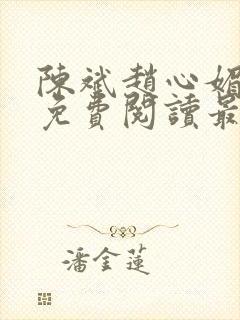 陳斌趙心媚
免費閱讀最
潘金蓮